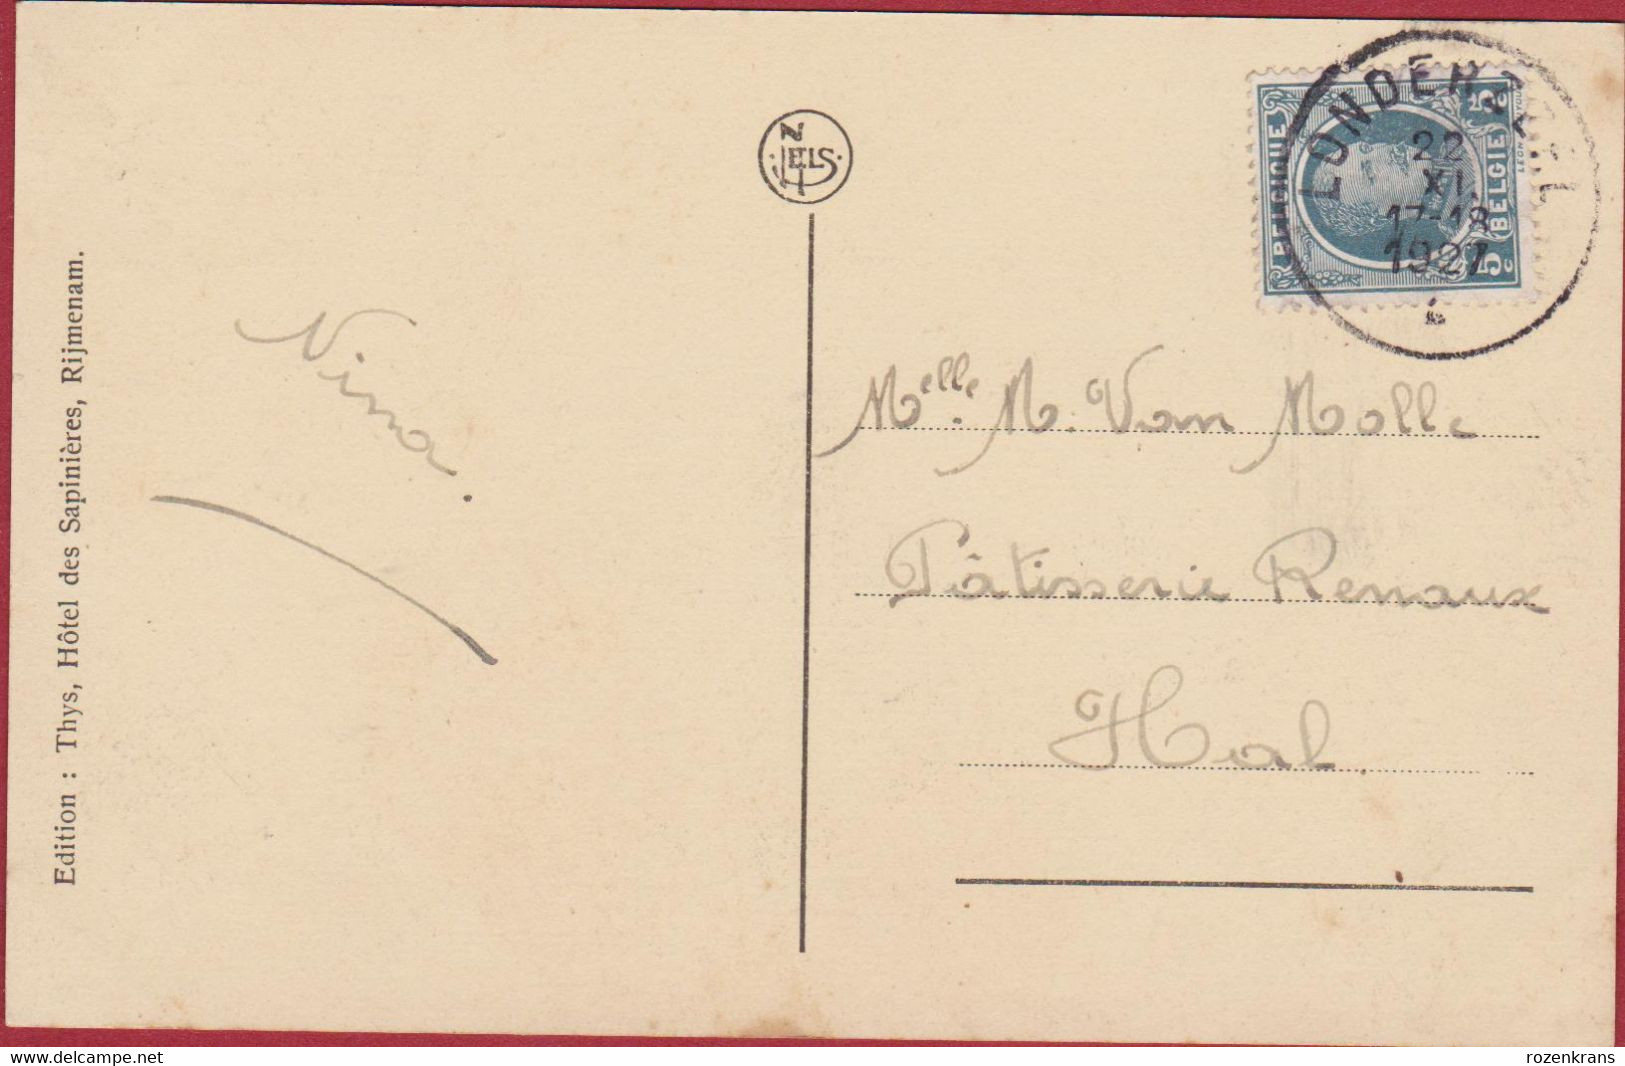 Edition : Thys, Hôtel des Sapinières, Rijmenam.
NELS
Nina.
LONDERZEEL
22
XI
17-18
1927
BELGIQUE
5 c
BELGIE
5 c
Melle. M. Van Molle
Pâtisserie Renaux
Hal
delcampe.net
rozenkrans